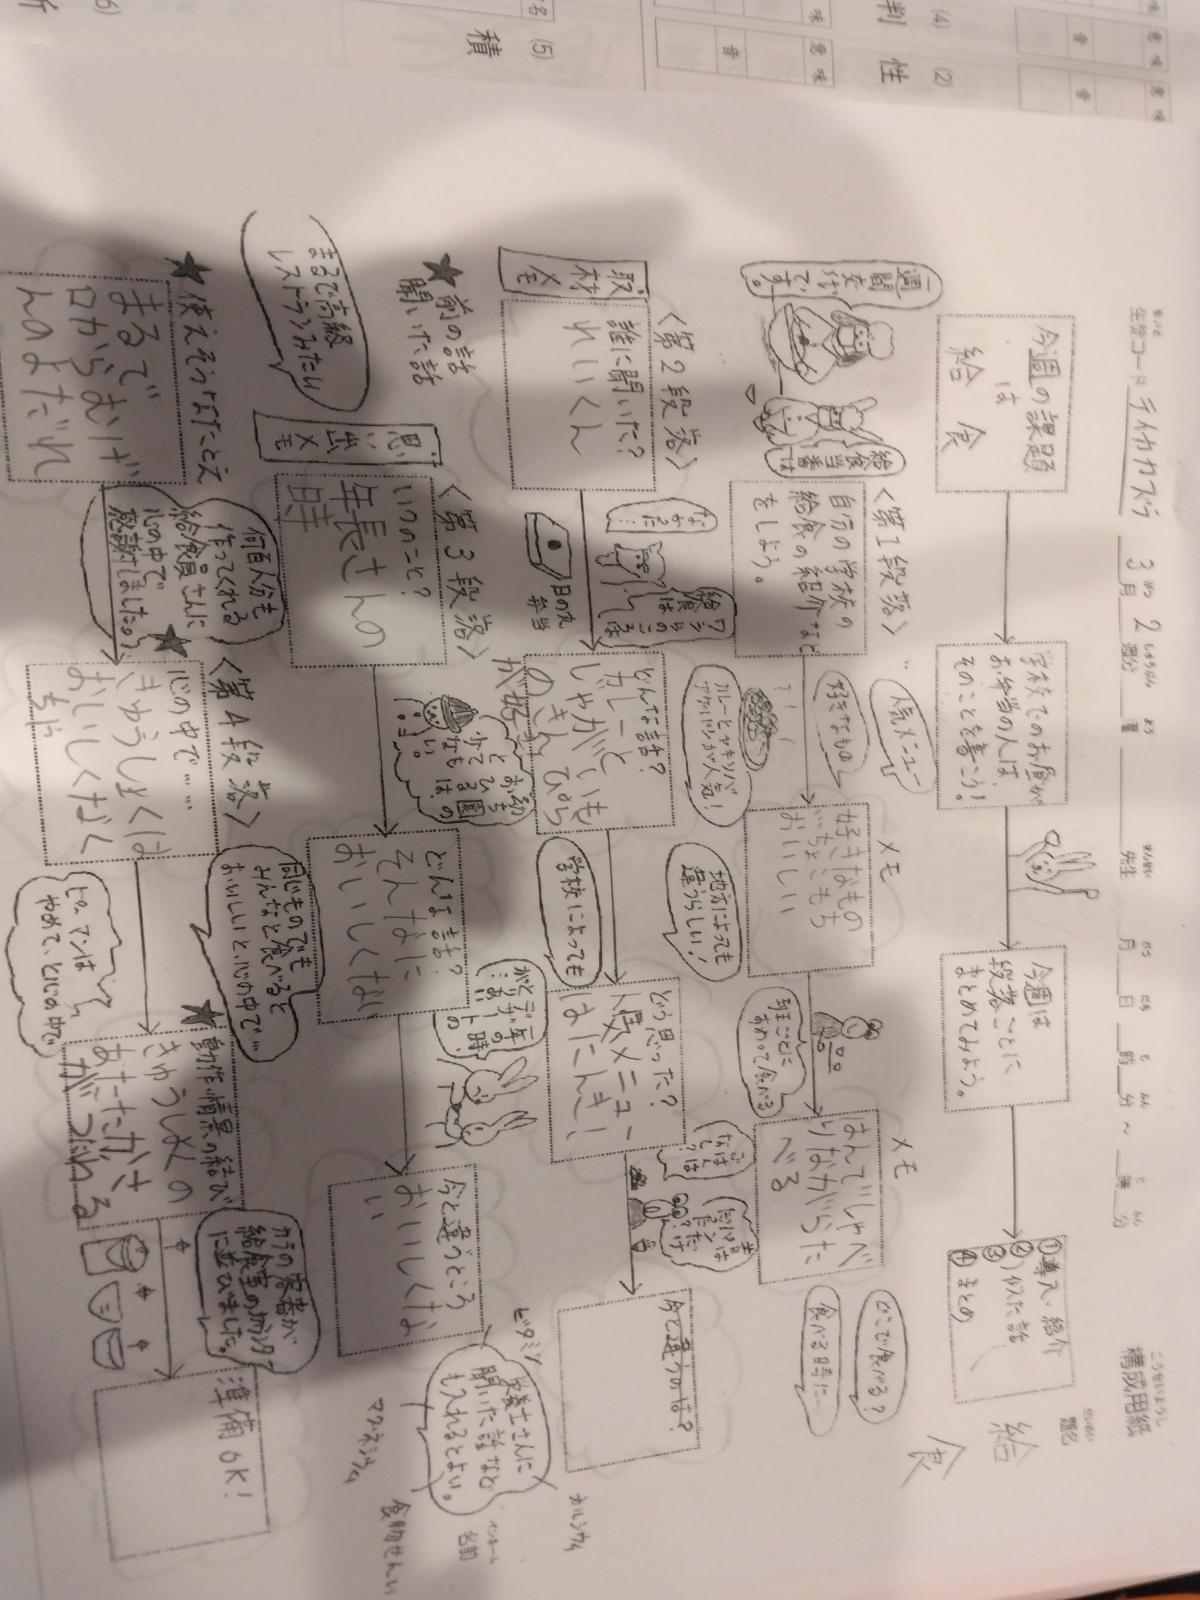 構成用紙
こうせいようし
題名
給食
生徒コード
3月2週分
先生 月 日 時 分 ~ 時 分
今週の課題
は
給食
学校でのお昼が
お弁当の人は、
そのことを書こう!
今週は
段落ごとに
まとめてみよう。
①導入・紹介
②
③ 似た話
④まとめ
<第1段落>
一週間交代です。
給食当番は
自分の学校の
給食の紹介など
をしよう。
人気メニュー
好きなもの
カレーとヤキソバ
アゲパンが人気!
メモ
好きなもの
どちょこもち
おいしい
地方によっても
違うらしい!
班ごとに
まわって食べる
メモ
はんでしゃべ
りながらた
べる
どこで食べる?
食べる時に…
<第2段落>
取材メモ
誰に聞いた?
れいくん
★前の話
聞いた話
日の丸
弁当
どんな話?
カレーと
じゃがいも
のきんぴら
学校によっても
どう思った?
僕メニュー
はにんき!
今と違うのは?
カルシウム
<第3段落>
思い出メモ
まるで高級
レストランみたい
いつのこと?
年長さんの
時
どんな話?
そんなに
おいしくない
同じものでも
みんなと食べると
おいしいと、心の中で…
今と違うところ
おいしくな
い
ビタミン
栄養士さんに
聞いた話など
も入れるとよい。
マグネシウム
食物せんい
ペンネーム
名前
<第4段落>
★使えそうなたとえ
まるで
口からむげ
んのよだれ
何百人分も
作ってくれる
給食員さんに
心の中で
感謝しました。
★心の中で……
きゅうしょくは
おいしくなく
ちゃ
ピーマンは
やめて、と心の中で
★動作・情景の結び
きゅうしょくの
あたたかさ
がつたわる
カラの容器が
給食室のカウンター
に並びました。
準備OK!
(2)
性
(4)
判
(5)
積
(6)
意味
音
意味
音
意味
味